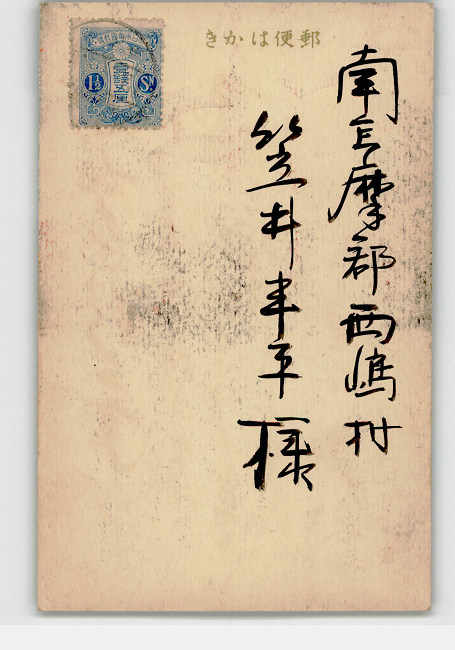 郵便はかき
南巨摩郡西嶋村
笠井半平様
壹錢五厘
1½ Sn